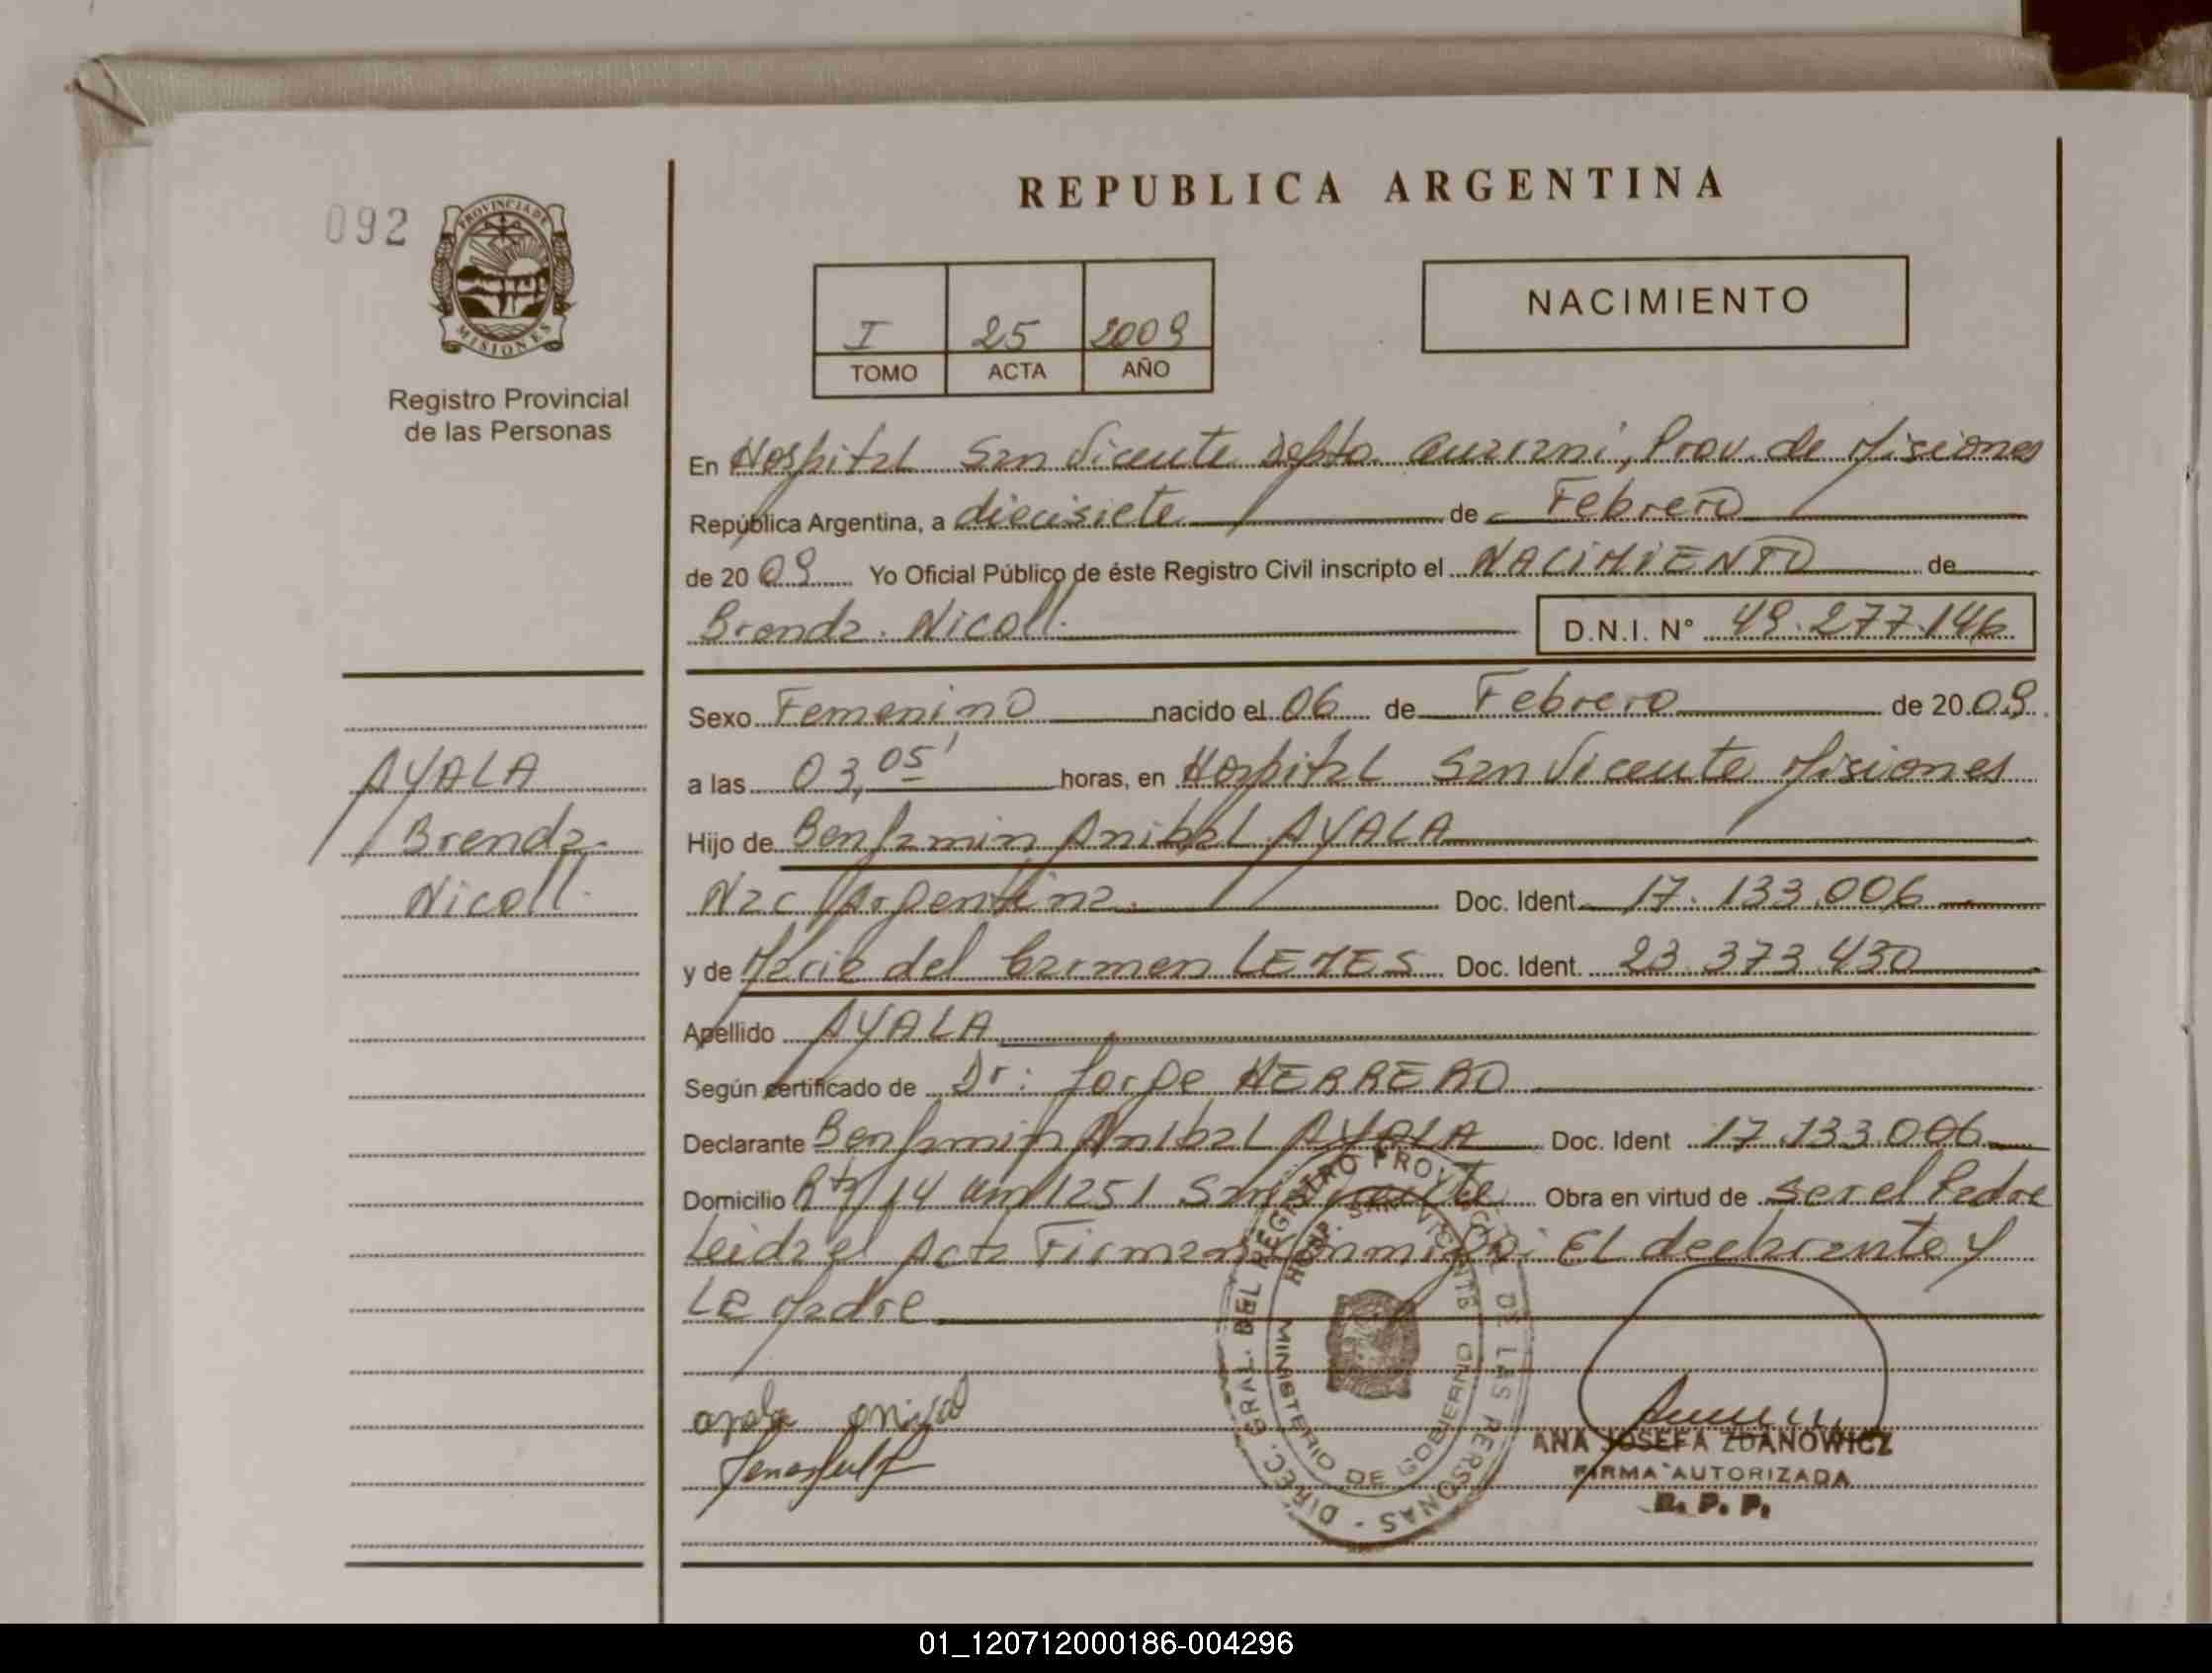 REPUBLICA ARGENTINA
092
PROVINCIA DE
MISIONES
Registro Provincial
de las Personas
I 25 2009
TOMO ACTA AÑO
NACIMIENTO
En Hospital San Vicente Depto. Guarani, Prov. de Misiones
República Argentina, a diecisiete de Febrero
de 2009 Yo Oficial Público de éste Registro Civil inscripto el NACIMIENTO de
Brenda. Nicoll. D.N.I. N° 49.277.146
Sexo Femenino nacido el 06 de Febrero de 2009.
a las 03,05' horas, en Hospital San Vicente Misiones
Hijo de Benjamin Anibal AYALA
Nac Argentina. Doc. Ident. 17.133.006
y de Maria del Carmen LEMES Doc. Ident. 23.373.430
Apellido AYALA
Según certificado de Dr: Jorge HERRERO
Declarante Benjamin Anibal AYALA Doc. Ident 17.133.006
Domicilio Rta 14 Km 1251 San Vicente Obra en virtud de ser el Padre
Leida el Acta Firman Conmigo: El declarante y
La Madre
AYALA
Brenda.
Nicoll.
ayala anibal
DIREC. GRAL. DEL REGISTRO PROVINCIAL DE LAS PERSONAS -
HOSP. SAN VICENTE
MINISTERIO DE GOBIERNO
ANA JOSEFA ZDANOWICZ
FIRMA AUTORIZADA
R. P. P.
01_120712000186-004296